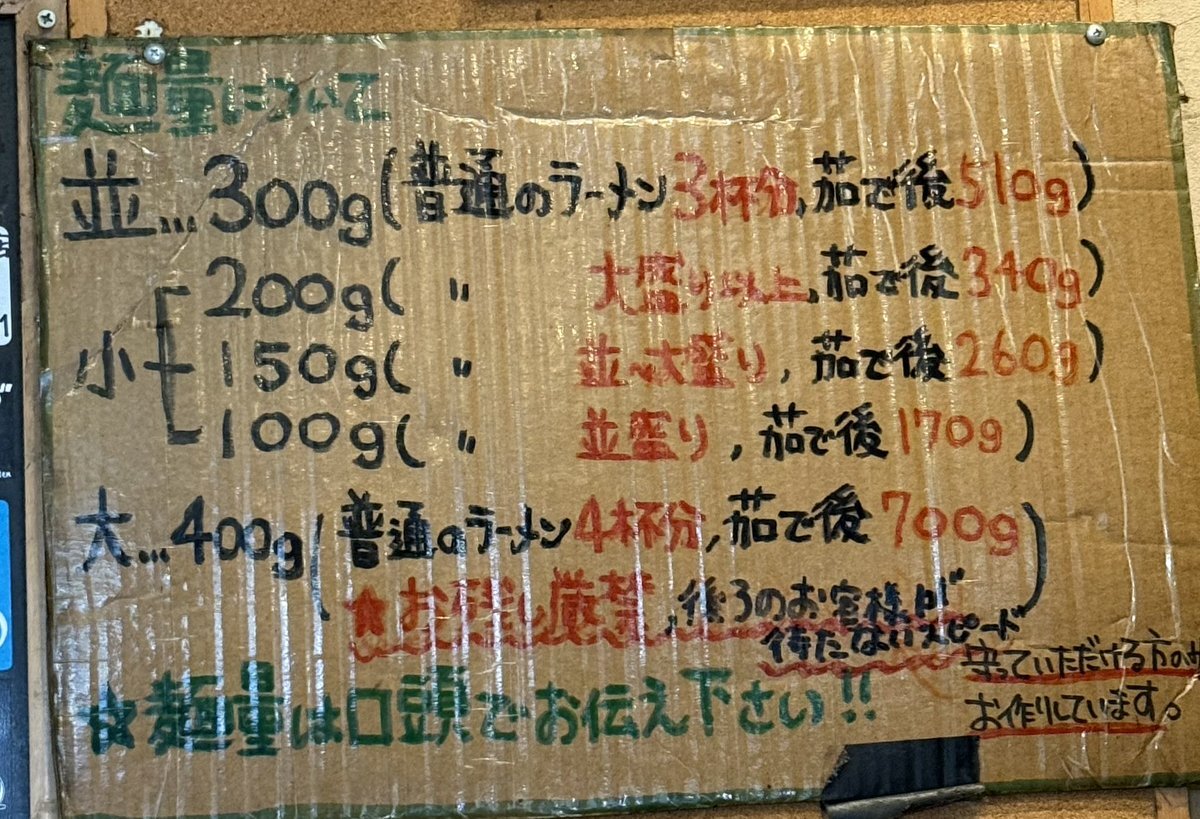 麺量について
並…300g(普通のラーメン3杯分,茹で後510g)
小 200g( 〃 大盛り以上,茹で後340g)
150g( 〃 並~大盛り,茹で後260g)
100g( 〃 並盛り,茹で後170g)
大…400g(普通のラーメン4杯分,茹で後700g
★お残し厳禁,後ろのお客様が
待たないスピード)
守っていただける方のみ
お作りしています。
☆麺量は口頭でお伝え下さい!!